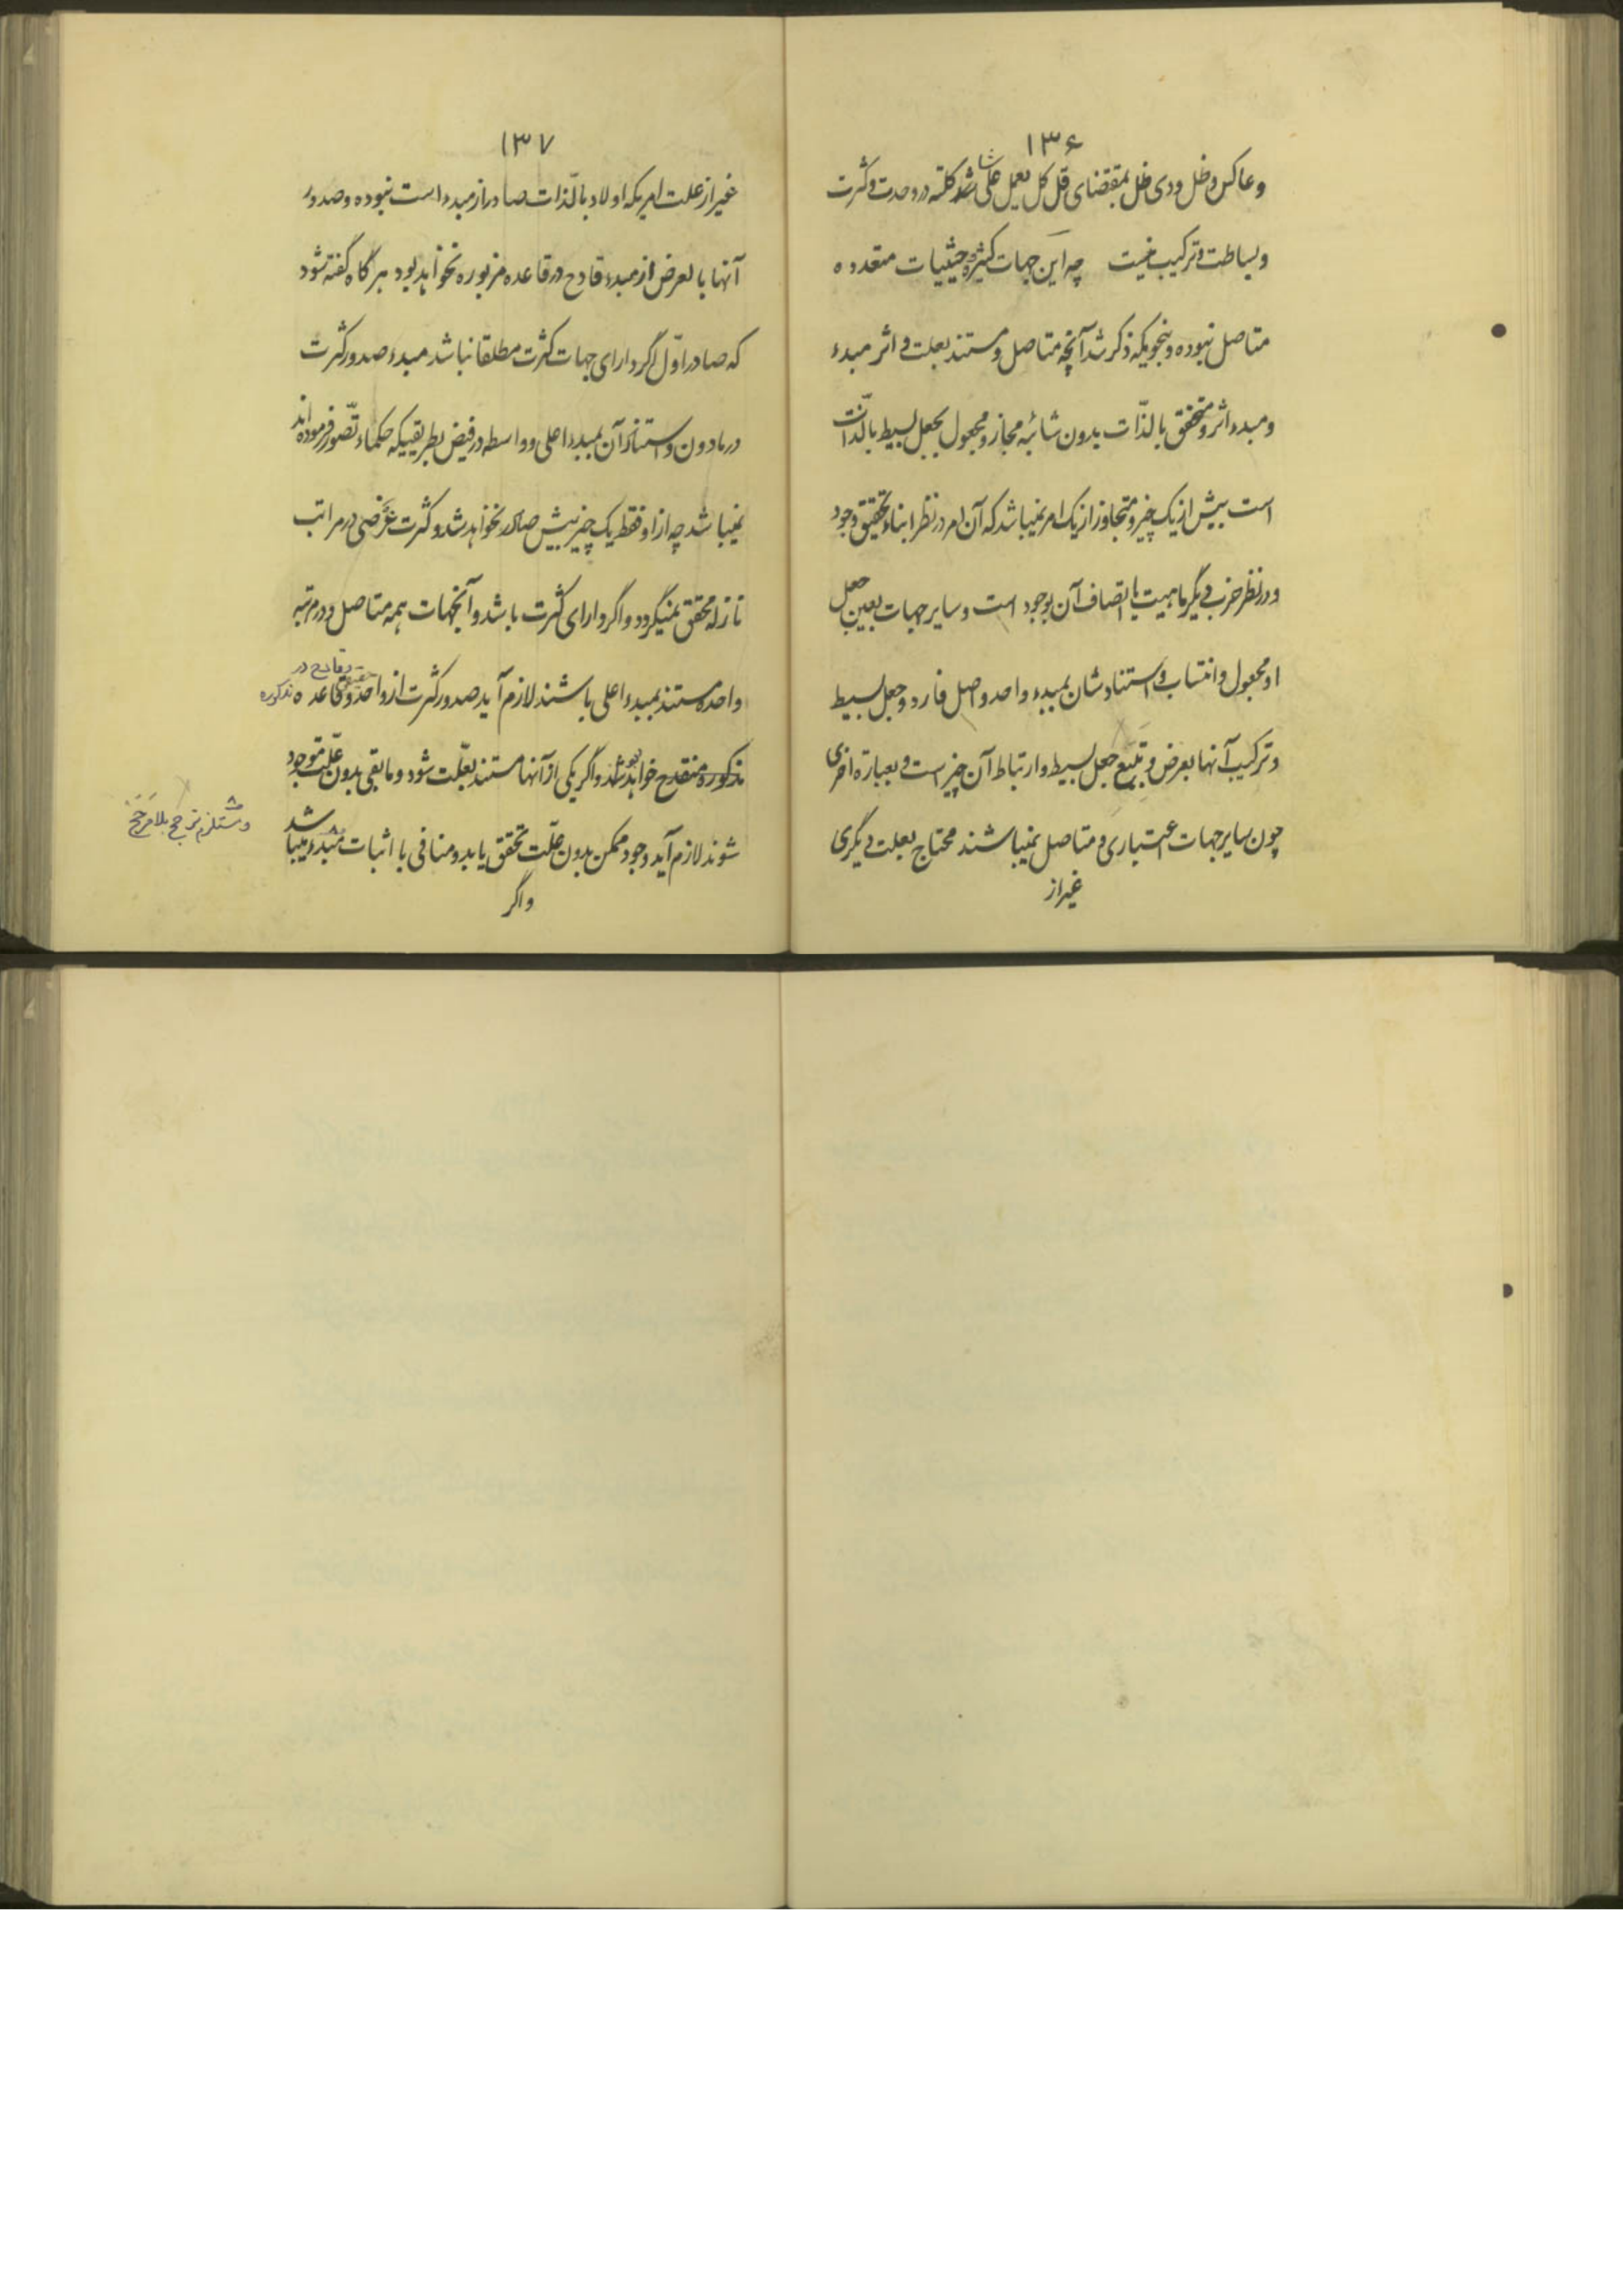 ۱۳۶
و عاکس و ظل و ذی ظل بمقتضای قل کل یعمل علی شاکلته در وحدت و کثرت
و بساطت و ترکیب نیست چه این جهات کثیره و حیثیات متعدده
متاصل نبوده و بنحویکه ذکر شد آنچه متاصل و مستند بعلت و اثر مبدء
و مبدء اثر و متحقق بالذّات بدون شائبه مجاز و مجعول بجعل بسیط بالذّات
است بیش از یک چیز و متجاوز از یک امر نمیباشد که آن امر در نظر ابناء تحقیق وجود
و در نظر حزب دیگر ماهیت یا اتصاف آن بوجود است و سایر جهات بعین جعل
او مجعول و انتساب و استنادشان بمبدء واحد و اصل فارد و جعل بسیط
و ترکیب آنها بعرض و بتبع جعل بسیط و ارتباط آن چیز است و بعبارة اخری
چون سایر جهات اعتباری و متاصل نمیباشند محتاج بعلت دیگری
غیر از
۱۳۷
غیر از علت امریکه اولا و بالّذات صادر از مبدء است نبوده و صدور
آنها بالعرض از مبدء قادح در قاعده مزبوره نخواهد بود هرگاه گفته شود
که صادر اوّل اگر دارای جهات کثرت مطلقا نباشد مبدء صدور کثرت
در مادون و استناد آن بمبدء اعلی و واسطه در فیض بطریقیکه حکماء تصّور فرموده‌اند
نمیباشد چه از او فقط یک چیز بیش صادر نخواهد شد و کثرت عَرَضی در مراتب
نازله محقق نمیگردد و اگر دارای کثرت باشد و آنجهات همه متاصل و در مرتبه
واحده مستند بمبدء اعلی باشند لازم آید صدور کثرت از واحد حقیقی و قاعده
مذکوره منقدح خواهد شد و اگر یکی از آنها مستند بعّلت شود و مابقی بدون عّلت موجود
شوند لازم آید وجود ممکن بدون عّلت تحقق یابد و منافی با اثبات مبدء میباشد
و مستلزم ترجح بلا مرجح
و اگر